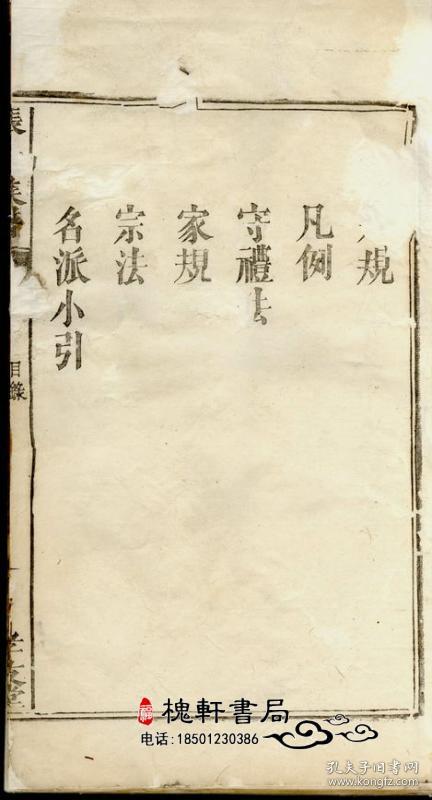 規
凡例
守禮法
家規
宗法
名派小引
張
族譜
目錄
孝友堂
槐軒書局
电话:18501230386
孔夫子旧书网
www.kongfz.com